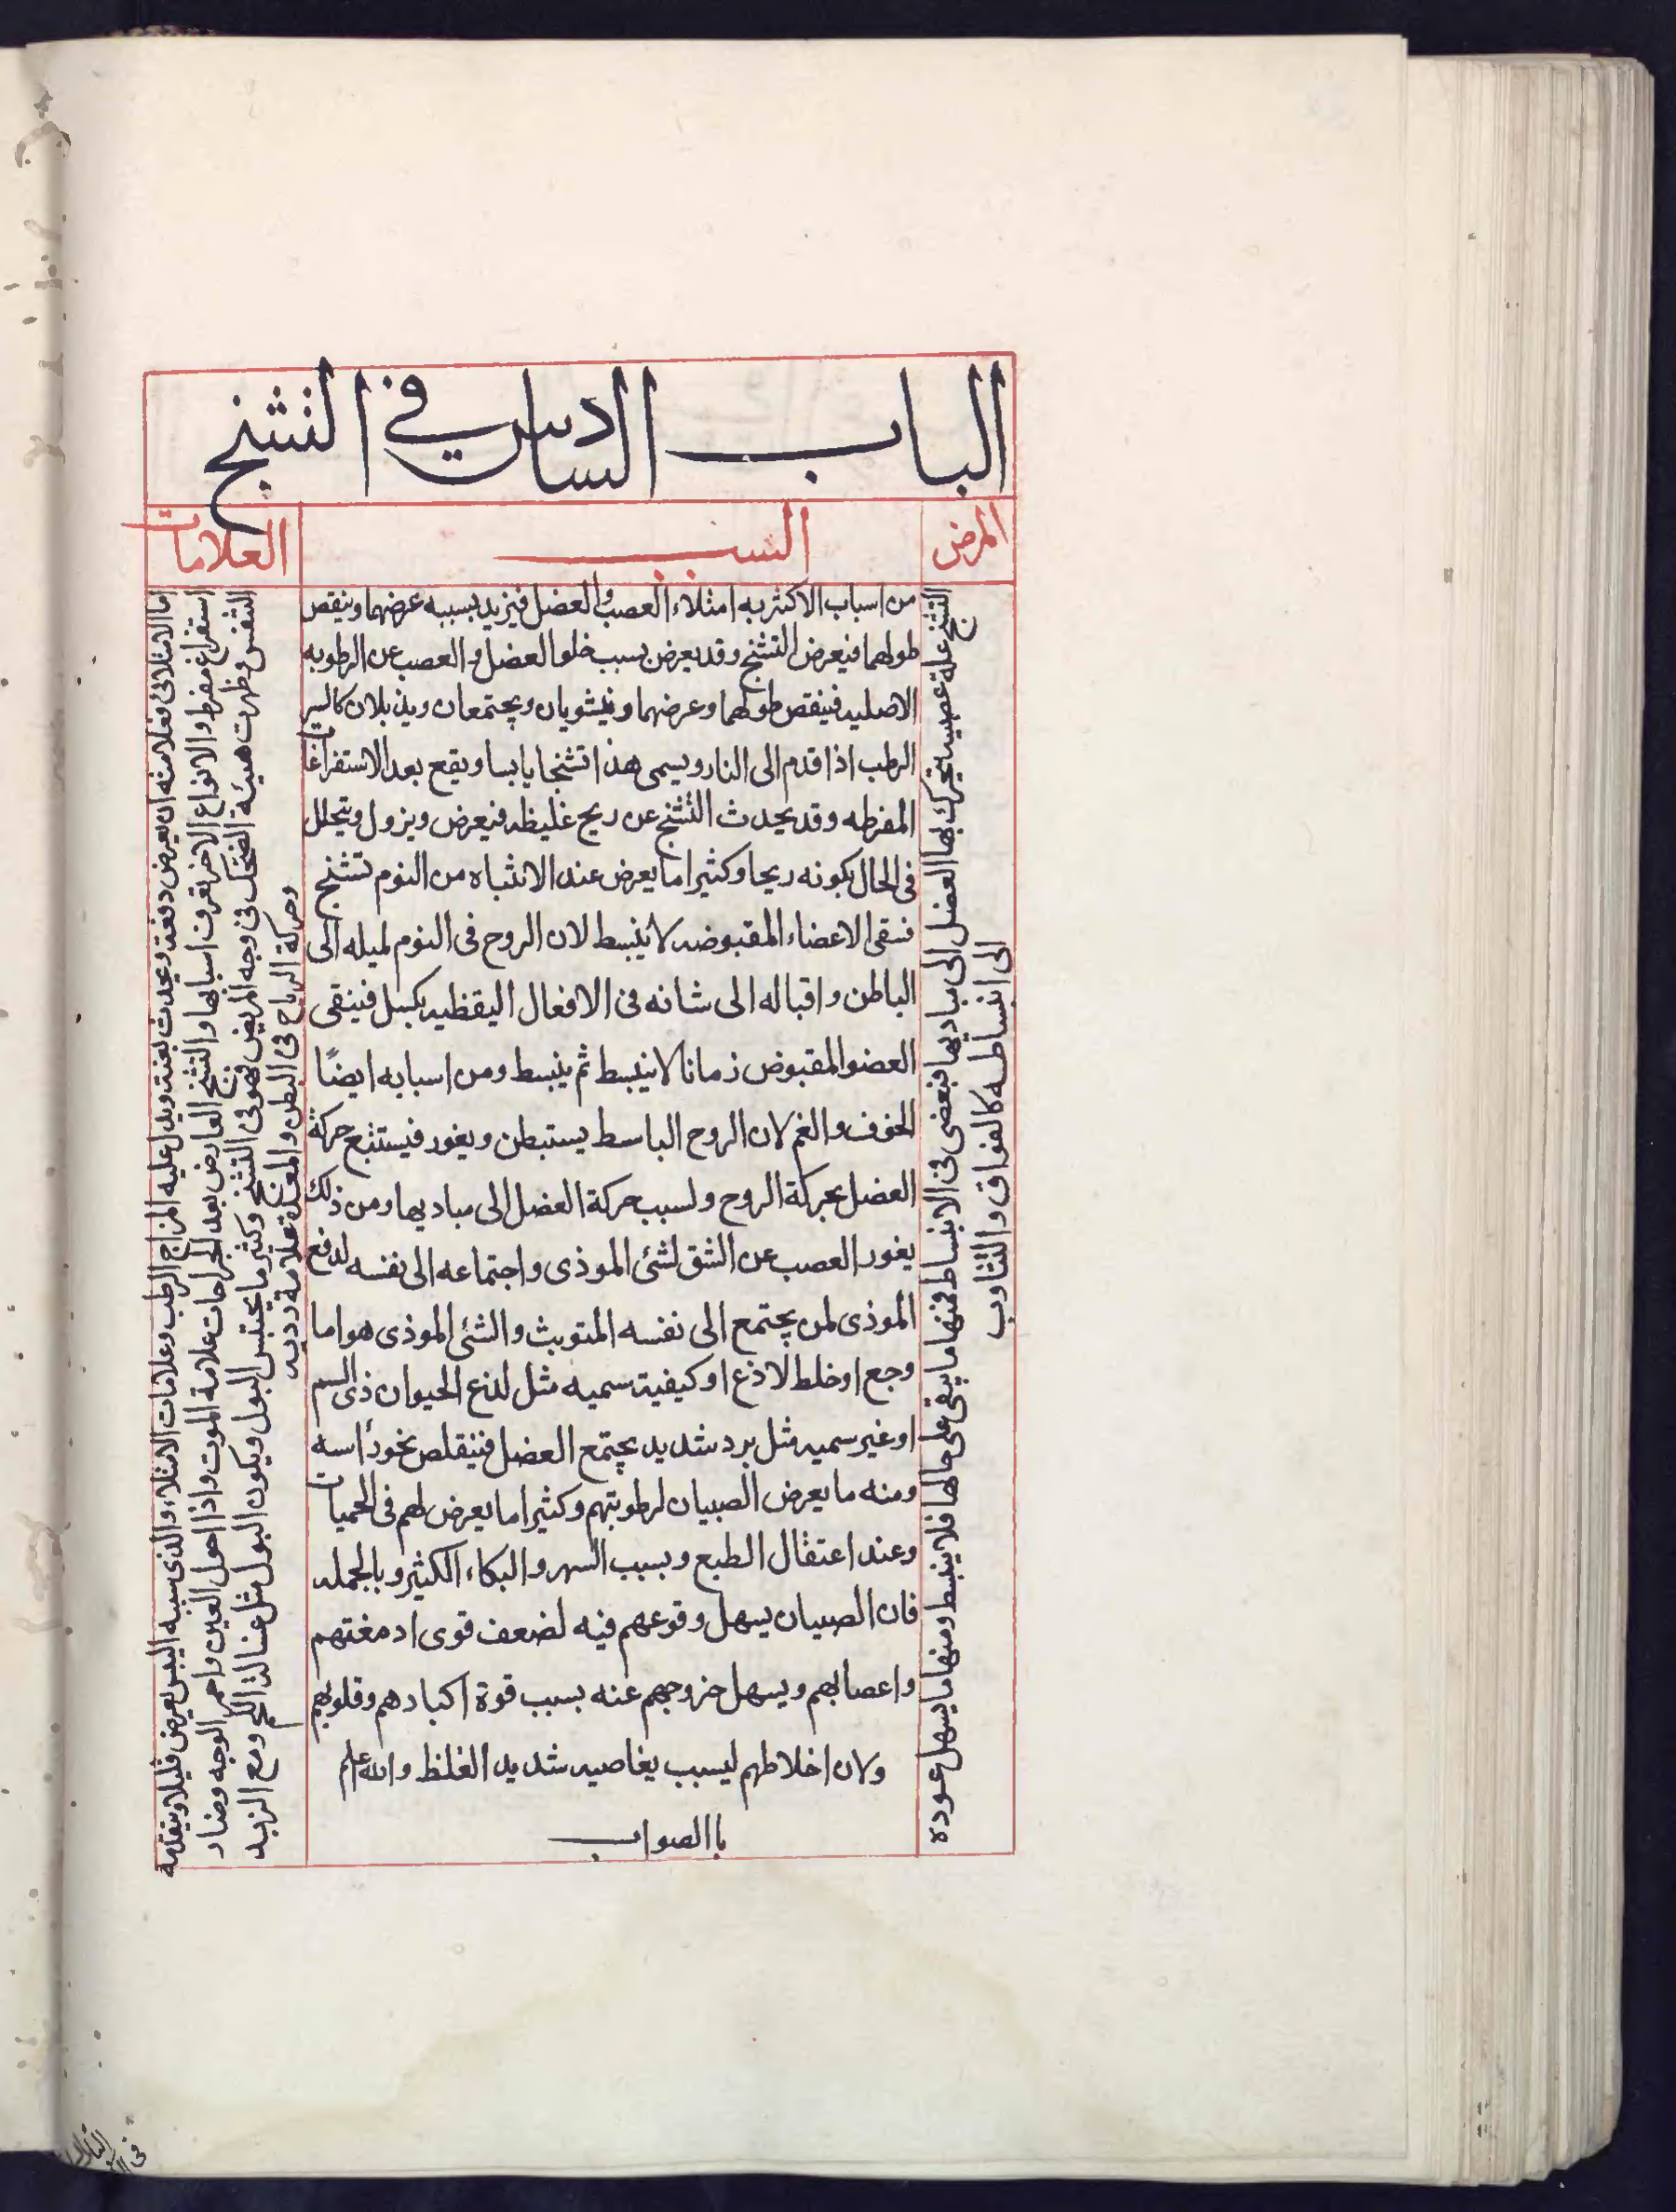 الباب السادس في التشنج
المرض
السبب
العلامات
التشنج علة عصبية يتحرك بها العضل الى مباديها فبعضى فى الانبساط فمنها ما يبقى على حالها فلا ينبسط ومنها ما يسهل عوده
الى انبساطه كالفواق والتثاوب
من اسباب الاكثريه امتلاء العصب والعضل فيزيد بسببه عرضهما وينقص
طولهما فيعرض التشنج وقد يعرض بسبب خلو العضل و العصب عن الرطوبه
الاصليه فينقص طولهما وعرضهما وينشويان ويجتمعان ويذبلان كالسير
الرطب اذا قدم الى النار ويسمى هذا تشنجا يابسا ويقع بعد الاستفراغات
المفرطه وقد يحدث التشنج عن ريح غليظه فيعرض ويزول ويتحلل
فى الحال بكونه ريحا وكثيرا ما يعرض عند الانتباه من النوم تشنج
فتبقى الاعضاء المقبوضه لا ينبسط لان الروح فى النوم لميله الى
الباطن واقباله الى شانه فى الافعال اليقظيه بكسل فيبقى
العضو المقبوض زمانا لا ينبسط ثم ينبسط ومن اسبابه ايضًا
الخوف والغم لان الروح الباسط يستبطن ويغور فيستتبع حركة
العضل بحركة الروح ولسبب حركة العضل الى مباديها ومن ذلك
يغور العصب عن الشق لشئى الموذى واجتماعه الى نفسه لدفع
الموذى لمن يجتمع الى نفسه المتوبث والشئى الموذى هو اما
وجع او خلط لاذع او كيفية سميه مثل لدغ الحيوان ذى السم
او غير سميه مثل برد شديد يجتمع العضل فيتقلص نحو راسه
ومنه ما يعرض الصبيان لرطوبتهم وكثيرا ما يعرض لهم فى الحميات
وعند اعتقال الطبع وبسبب السهر والبكاء الكثير وبالجمله
فان الصبيان يسهل وقوعهم فيه لضعف قوى ادمغتهم
واعصابهم ويسهل خروجهم عنه بسبب قوة اكبادهم وقلوبهم
ولان اخلاطهم ليسبب يغاصيه شديد الغلظ والله اعلم
باالصواب
اما الامتلائى فعلامته ان يعرض دفعة ويحدث بغتة ويدل عليه المزاج الرطب وعلامات الامتلاء والذى سببه اليبس يعرض قليلا ويتقدمه
استفراغ مفرط والانواع الاخر يعرف اسبابها والتشنج العارض بعد الجراحات علامة الموت واذا احول العين واحمر الوجه وضار
التنفس وظهرت هيئة الضحك فى وجه المريض فهو فى التشنج وكثير ما يحتبس البول ويكون البول مثل غسالة اللحم ومع الزبد
وحركة الرياح فى البطن والمعدة علامة رديه